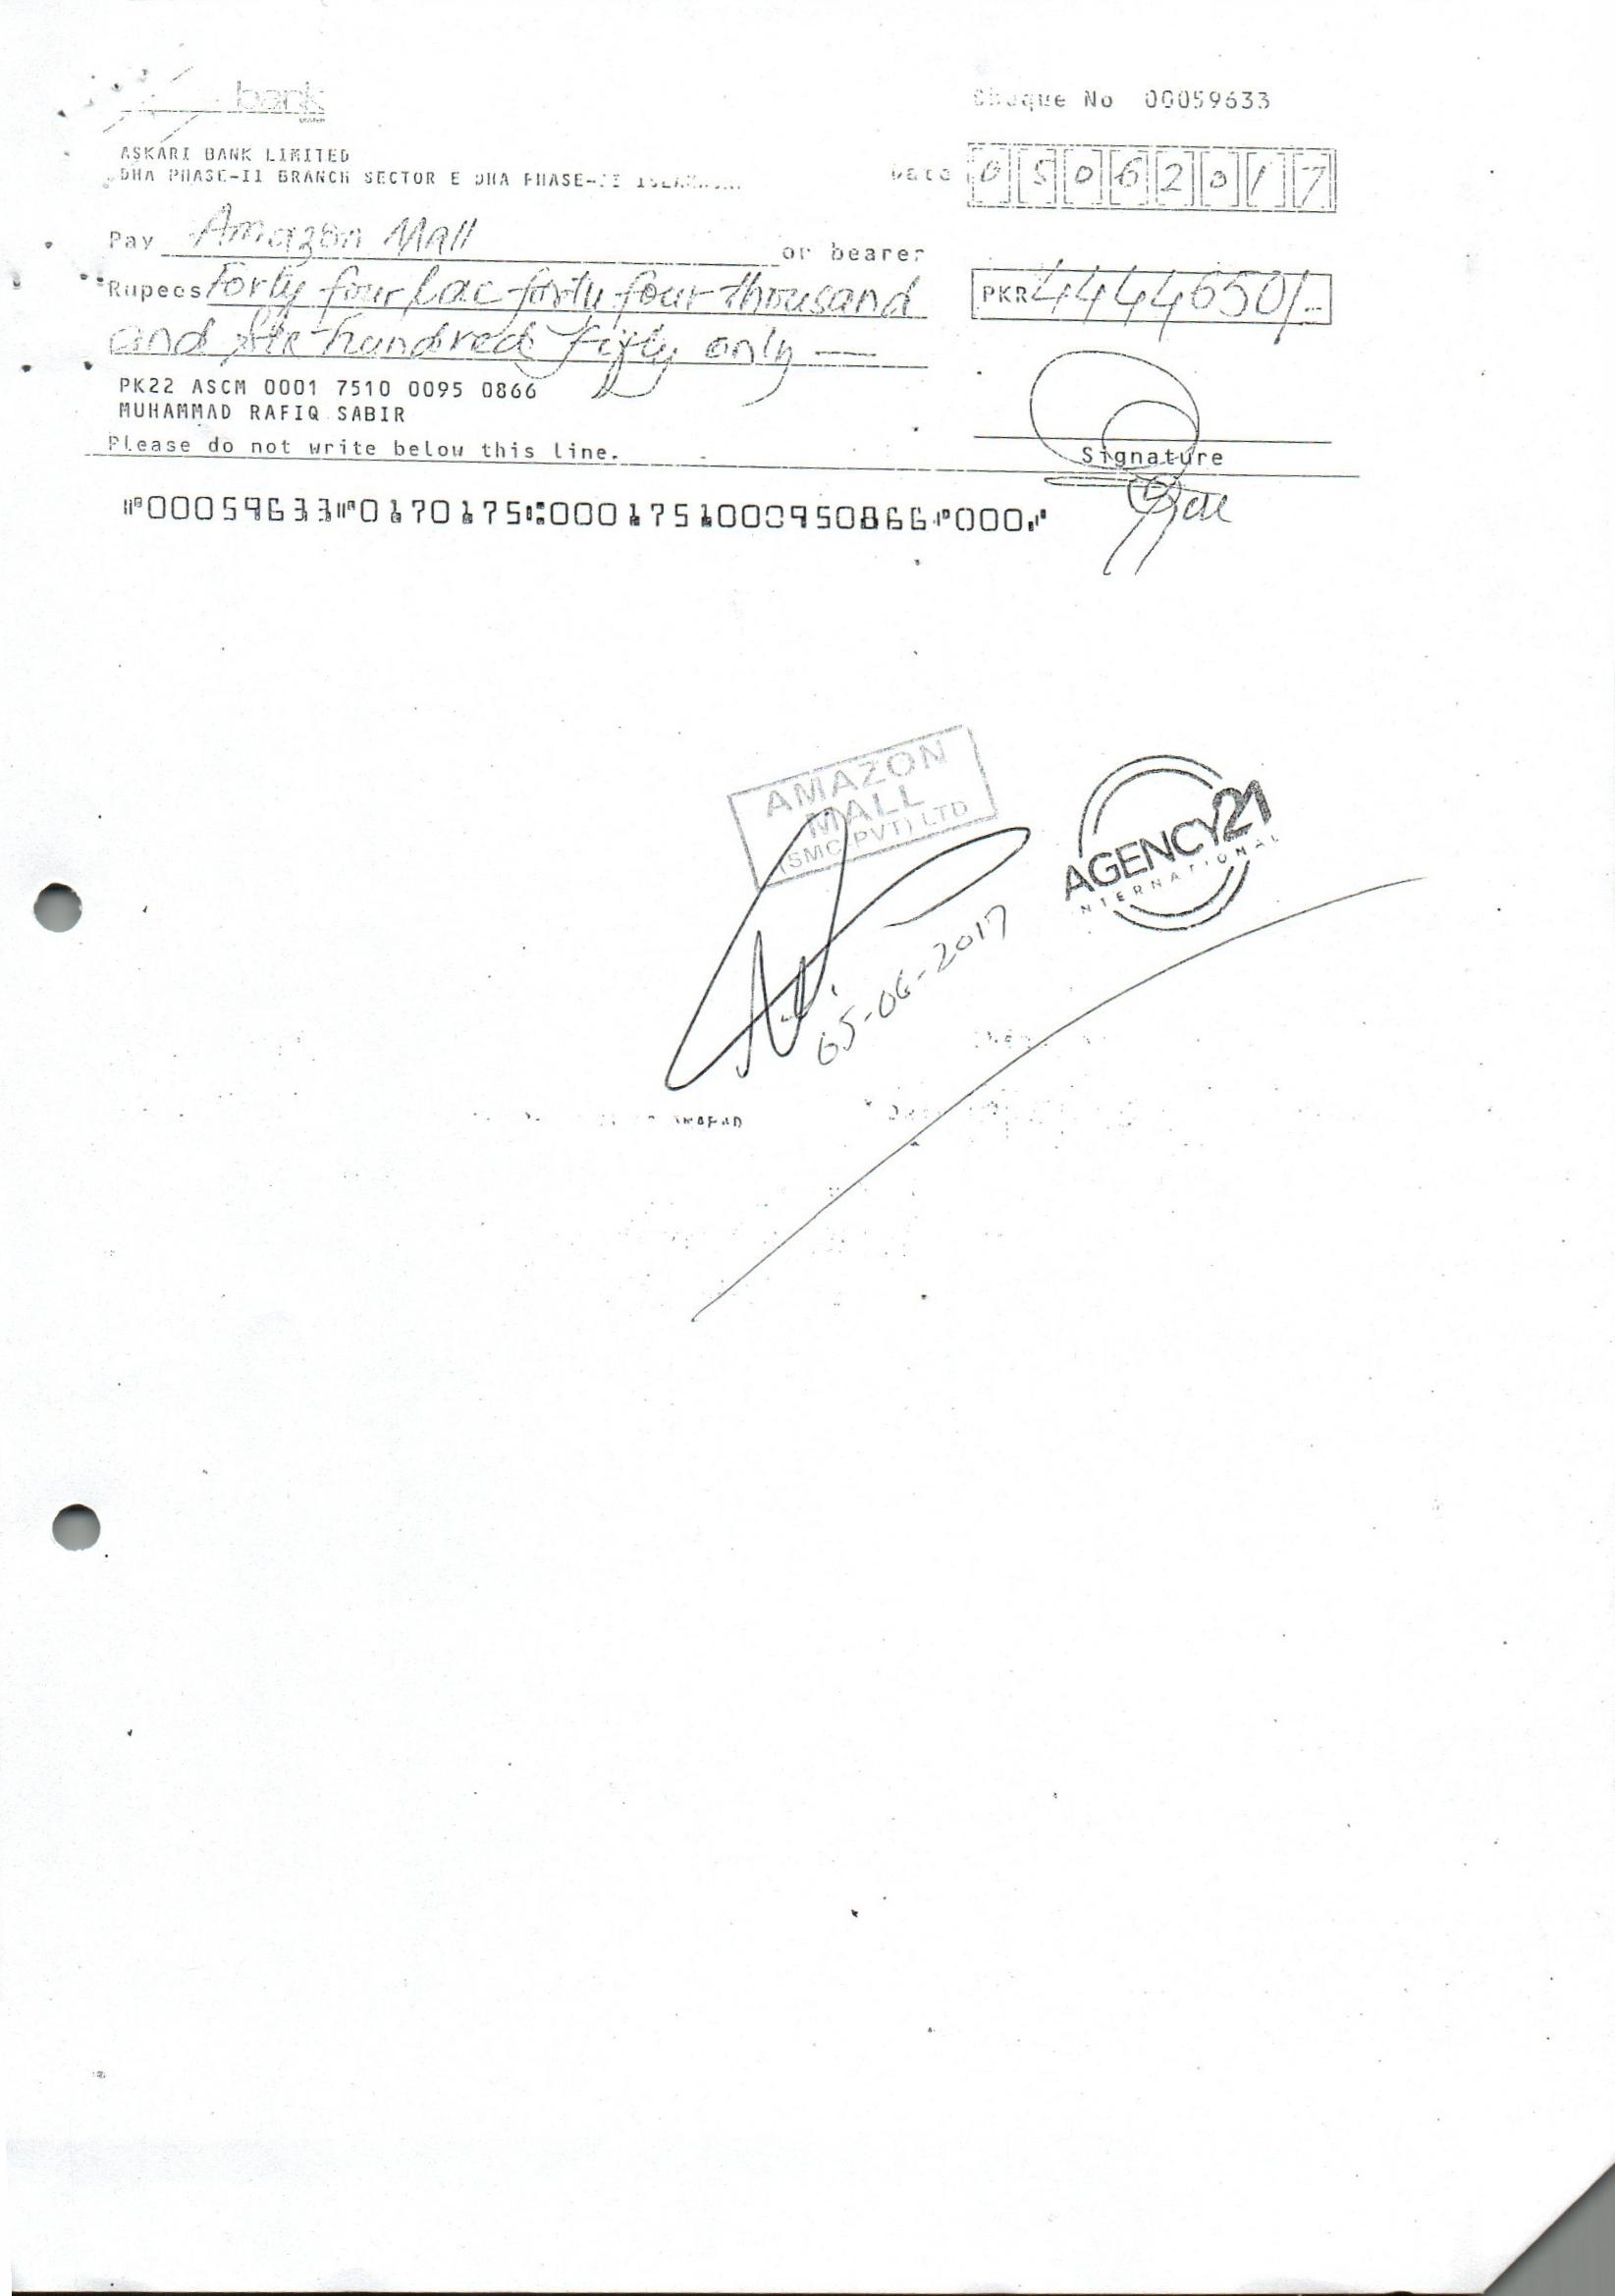 bank
Cheque No 00059633
ASKARI BANK LIMITED
DHA PHASE-II BRANCH SECTOR E DHA PHASE-II
Date 05062017
Pay Amazon Mall or bearer
Rupees Forty four lac forty four thousand
PKR 4444650/-
and six hundred fifty only —
PK22 ASCM 0001 7510 0095 0866
MUHAMMAD RAFIQ SABIR
Please do not write below this line.
Signature
⑈00059633⑈0170175⑆0001751000950866⑈000⑈
AMAZON
MALL
(SMC PVT) LTD
AGENCY21
INTERNATIONAL
05-06-2017